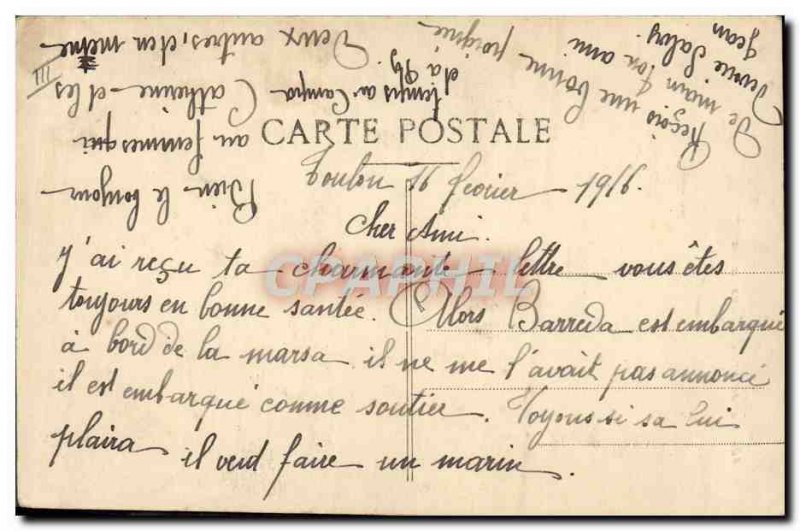 CARTE POSTALE
Toulon 16 fevrier 1916.
Cher Ami.
J'ai reçu ta charmante lettre vous êtes
toujours en bonne santée. Alors Barreda est embarqué
à bord de la marsa il ne me l'avait pas annoncé
il est embarqué comme soutier. Voyons si sa lui
plaira il veut faire un marin.
Bien le bonjour
au femmes qui
Catherine et les
Deux autres, et en même
temps au Campo
et à
Reçois une bonne poignée
De main ton ami
Jean
III
CPAPHIL